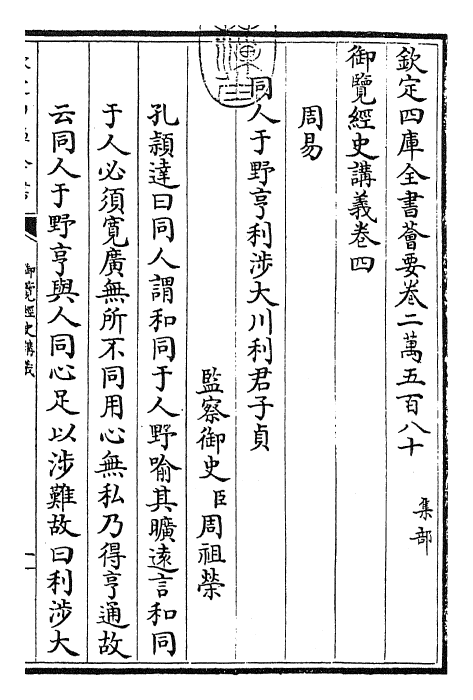 欽定四庫全書薈要卷二萬五百八十
集部
御覽經史講義卷四
周易
同人于野亨利涉大川利君子貞
監察御史臣周祖榮
孔頴達曰同人謂和同于人野喻其曠遠言和同
于人必須寛廣無所不同用心無私乃得亨通故
云同人于野亨與人同心足以涉難故曰利涉大
御覽經史講義
一